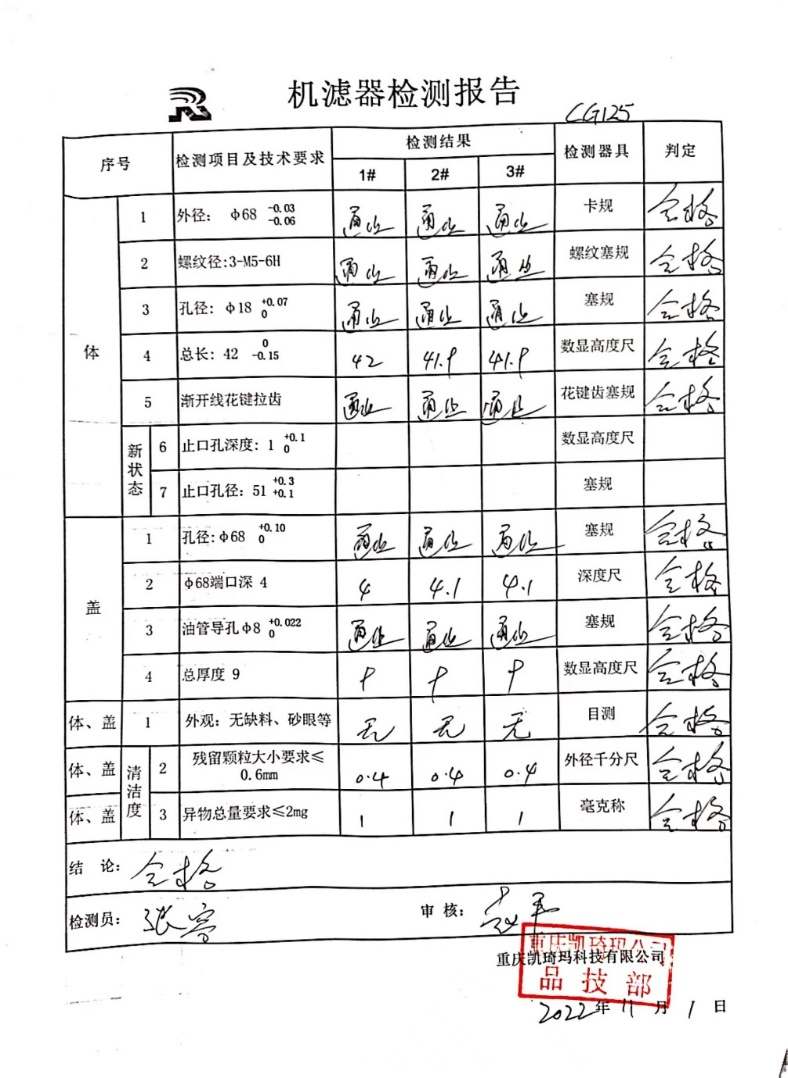 机滤器检测报告
CG125
序号 检测项目及技术要求 检测结果 检测器具 判定
1# 2# 3#
体
1 外径: φ68 -0.03 -0.06 通止 通止 通止 卡规 合格
2 螺纹径:3-M5-6H 通止 通止 通止 螺纹塞规 合格
3 孔径: φ18 +0.07 0 通止 通止 通止 塞规 合格
4 总长: 42 0 -0.15 42 41.9 41.9 数显高度尺 合格
5 渐开线花键拉齿 通止 通止 通止 花键齿塞规 合格
新状态
6 止口孔深度: 1 +0.1 0 数显高度尺
7 止口孔径: 51 +0.3 +0.1 塞规
盖
1 孔径:φ68 +0.10 0 通止 通止 通止 塞规 合格
2 φ68端口深 4 4 4.1 4.1 深度尺 合格
3 油管导孔φ8 +0.022 0 通止 通止 通止 塞规 合格
4 总厚度 9 9 9 9 数显高度尺 合格
体、盖 1 外观: 无缺料、砂眼等 无 无 无 目测 合格
清洁度
体、盖 2 残留颗粒大小要求≤
0.6mm 0.4 0.4 0.4 外径千分尺 合格
体、盖 3 异物总量要求≤2mg 1 1 1 毫克称 合格
结 论: 合格
检测员: 张 审 核:
重庆凯琦玛科技有限公司
品技部
2022年 11 月 1 日